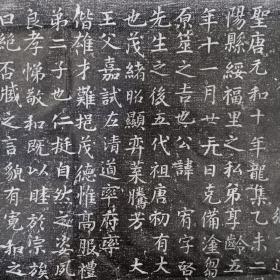 聖唐元和十年龍集乙未
陽縣綏福里之私第享齡五
年十一月廿日克備塗芻
原筮之吉也公諱宥字啓
先生之後五代祖唐初有大
也茂緒昭顯弈葉騰芳大
王父嘉試左清道率府率
偕雄才難挹茂德惟高服禮
弟二子也仁挺自然之姿夙
良孝悌敬和既以睦於宗族
口絕否臧之言貌有寬和之